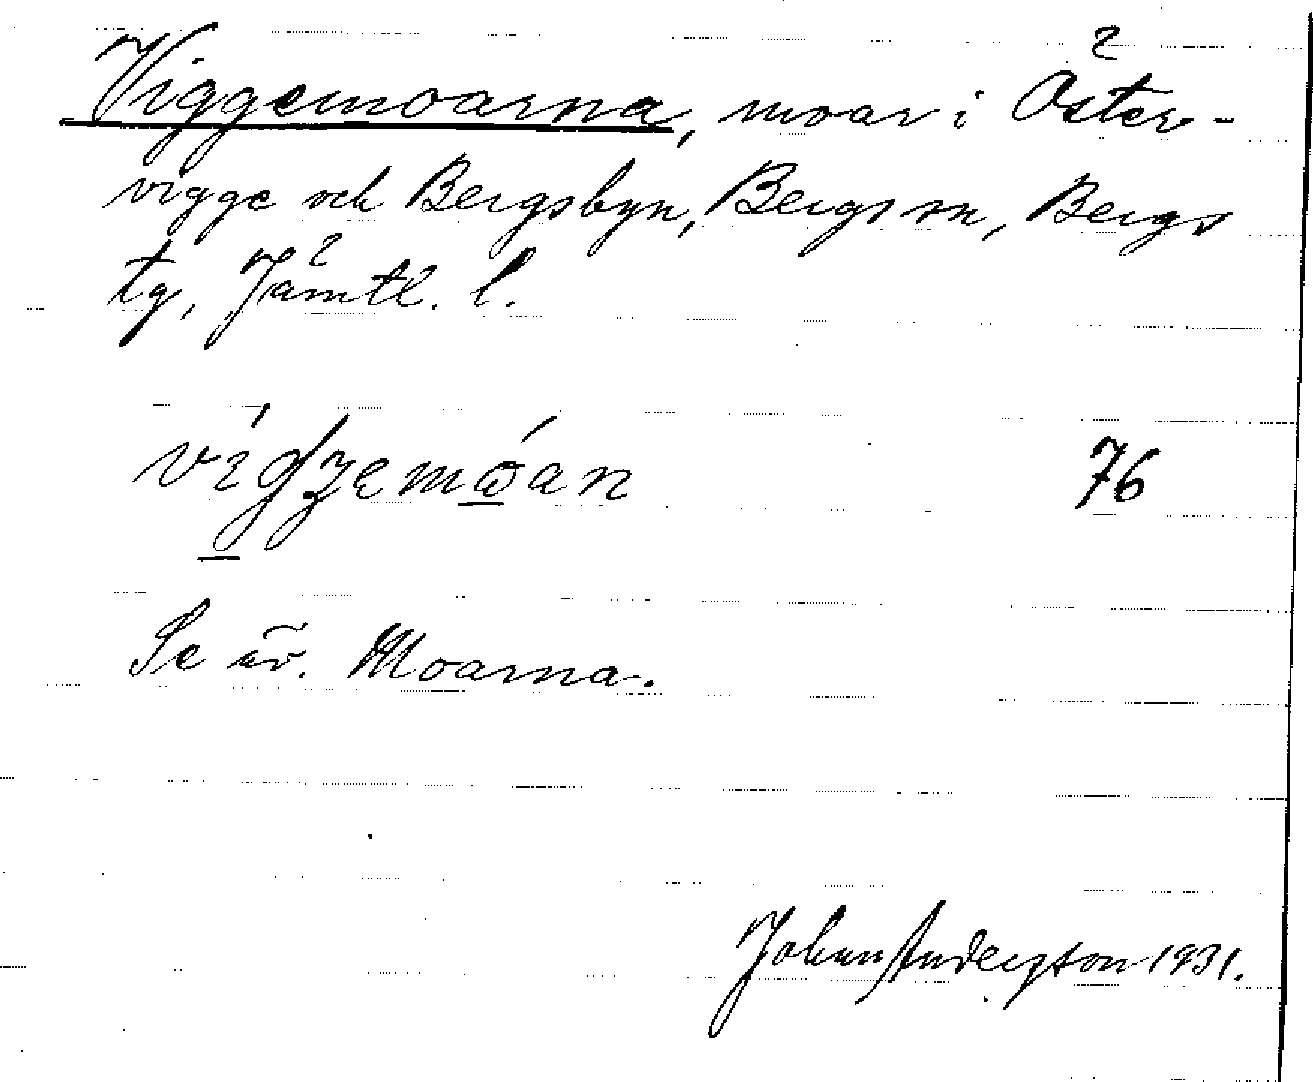 Viggemoarna, moar i Öster-
vigge och Bergsbyn, Bergs sn, Bergs
tg, Jämtl. l.
76
Se äv. Moarna.
Johan Andersson 1931.